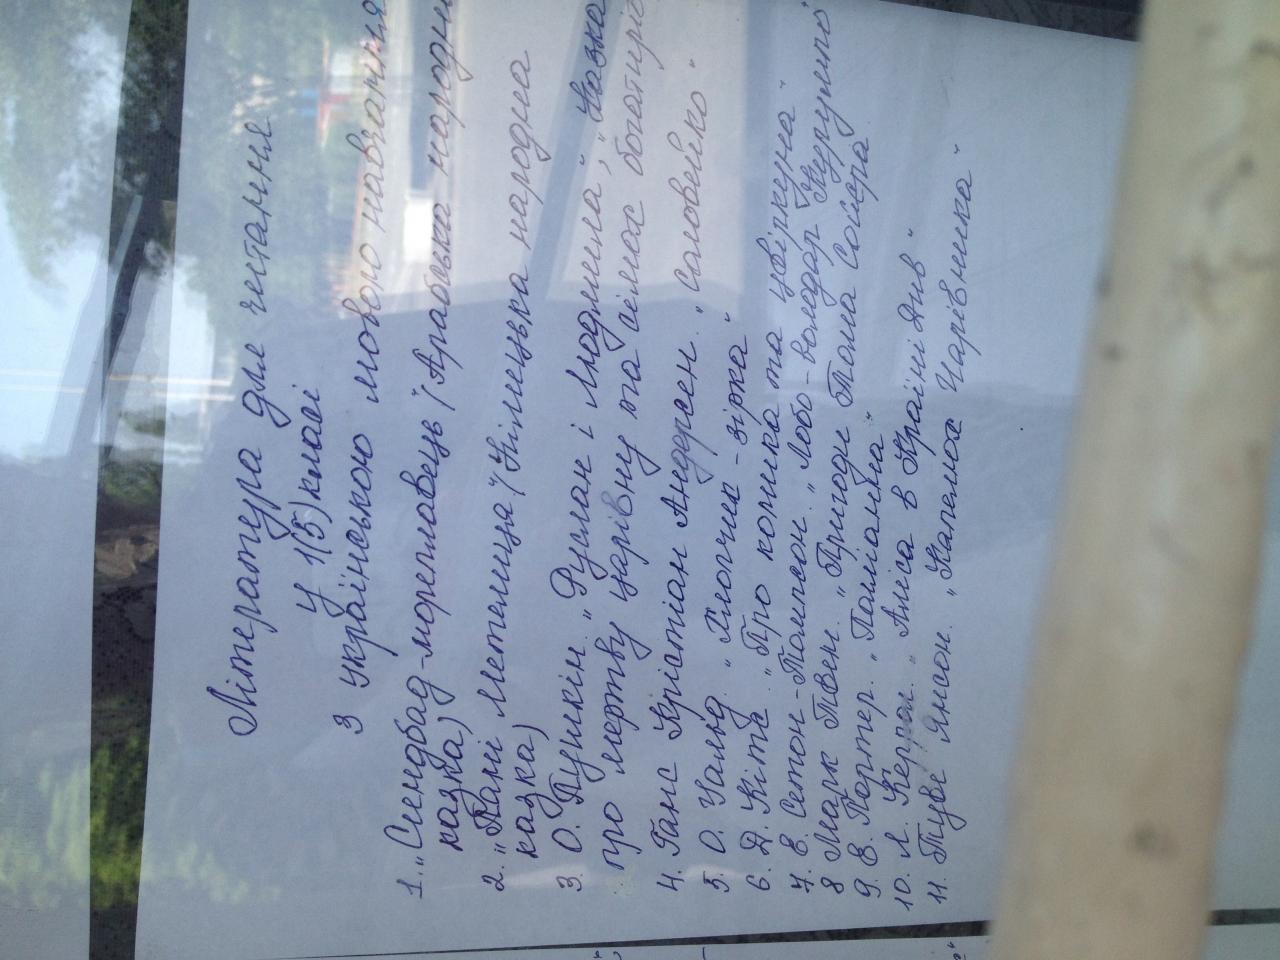 Література для читання
у 1(5) класі
з українською мовою навчання
1. „Синдбад-мореплавець" (Арабська народна
казка)
2. „Пані Метелиця" (Німецька народна
казка)
3. О. Пушкін. „Руслан і Людмила", „Казка
про мертву царівну та сімох богатирів
4. Ганс Крістіан Андерсен. „Соловейко"
5. О. Уальд. „Хлопчик-зірка"
6. Д. Кітс. „Про коника та цвіркуна"
7. Е. Сетон-Томпсон. „Лобо-володар Курумпо"
8 Марк Твен. „Пригоди Тома Сойєра
9. Е. Портер. „Поліанна"
10. Л. Керрол. „Аліса в Країні Див"
11. Туве Янсон. „Капелюх Чарівника"